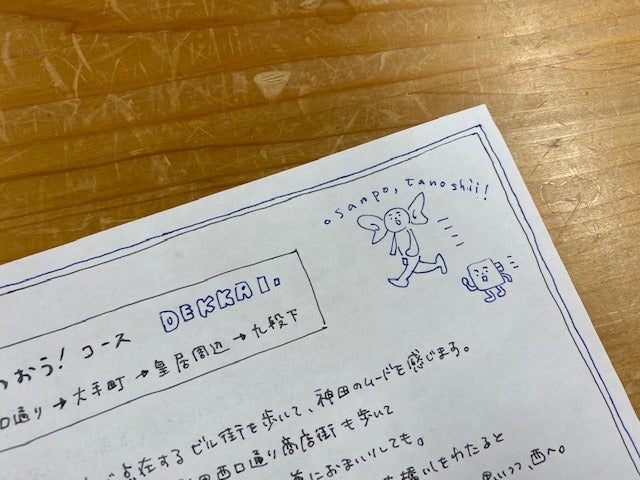 osanpo, tanoshii!
おう！コース DEKKAI.
口通り→大手町→皇居周辺→九段下
点在するビル街を歩いて、神田のムードを感じます。
西口通り商店街も歩いて
におまいりしても。
橋をわたると
思いつつ、西へ。